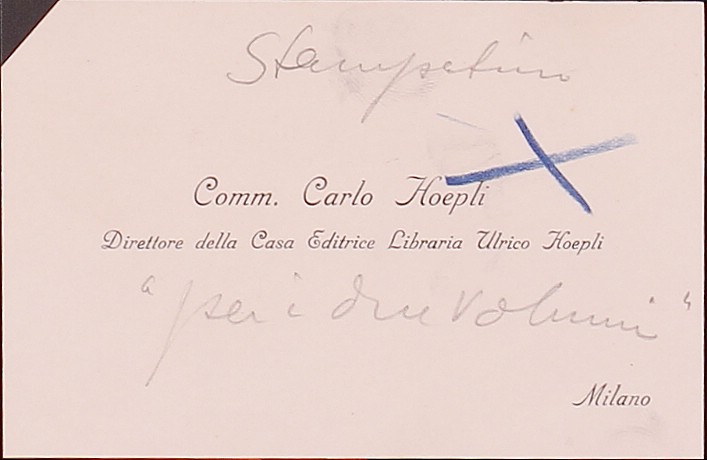 Stampatino
Comm. Carlo Hoepli
Direttore della Casa Editrice Libraria Ulrico Hoepli
"per i due volumi"
Milano